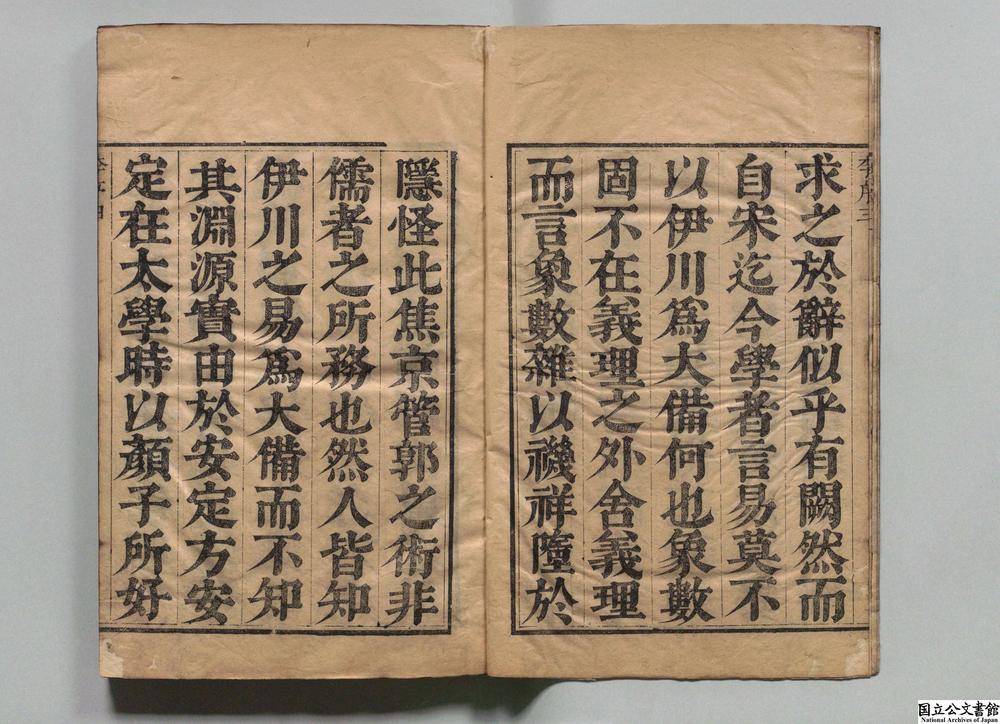 求之於辭似乎有闕然而
自宋迄今學者言易莫不
以伊川爲大備何也象數
固不在義理之外舍義理
而言象數雜以禨祥墮於
隱怪此焦京管郭之術非
儒者之所務也然人皆知
伊川之易爲大備而不知
其淵源實由於安定方安
定在太學時以顏子所好
李序三
国立公文書館
National Archives of Japan